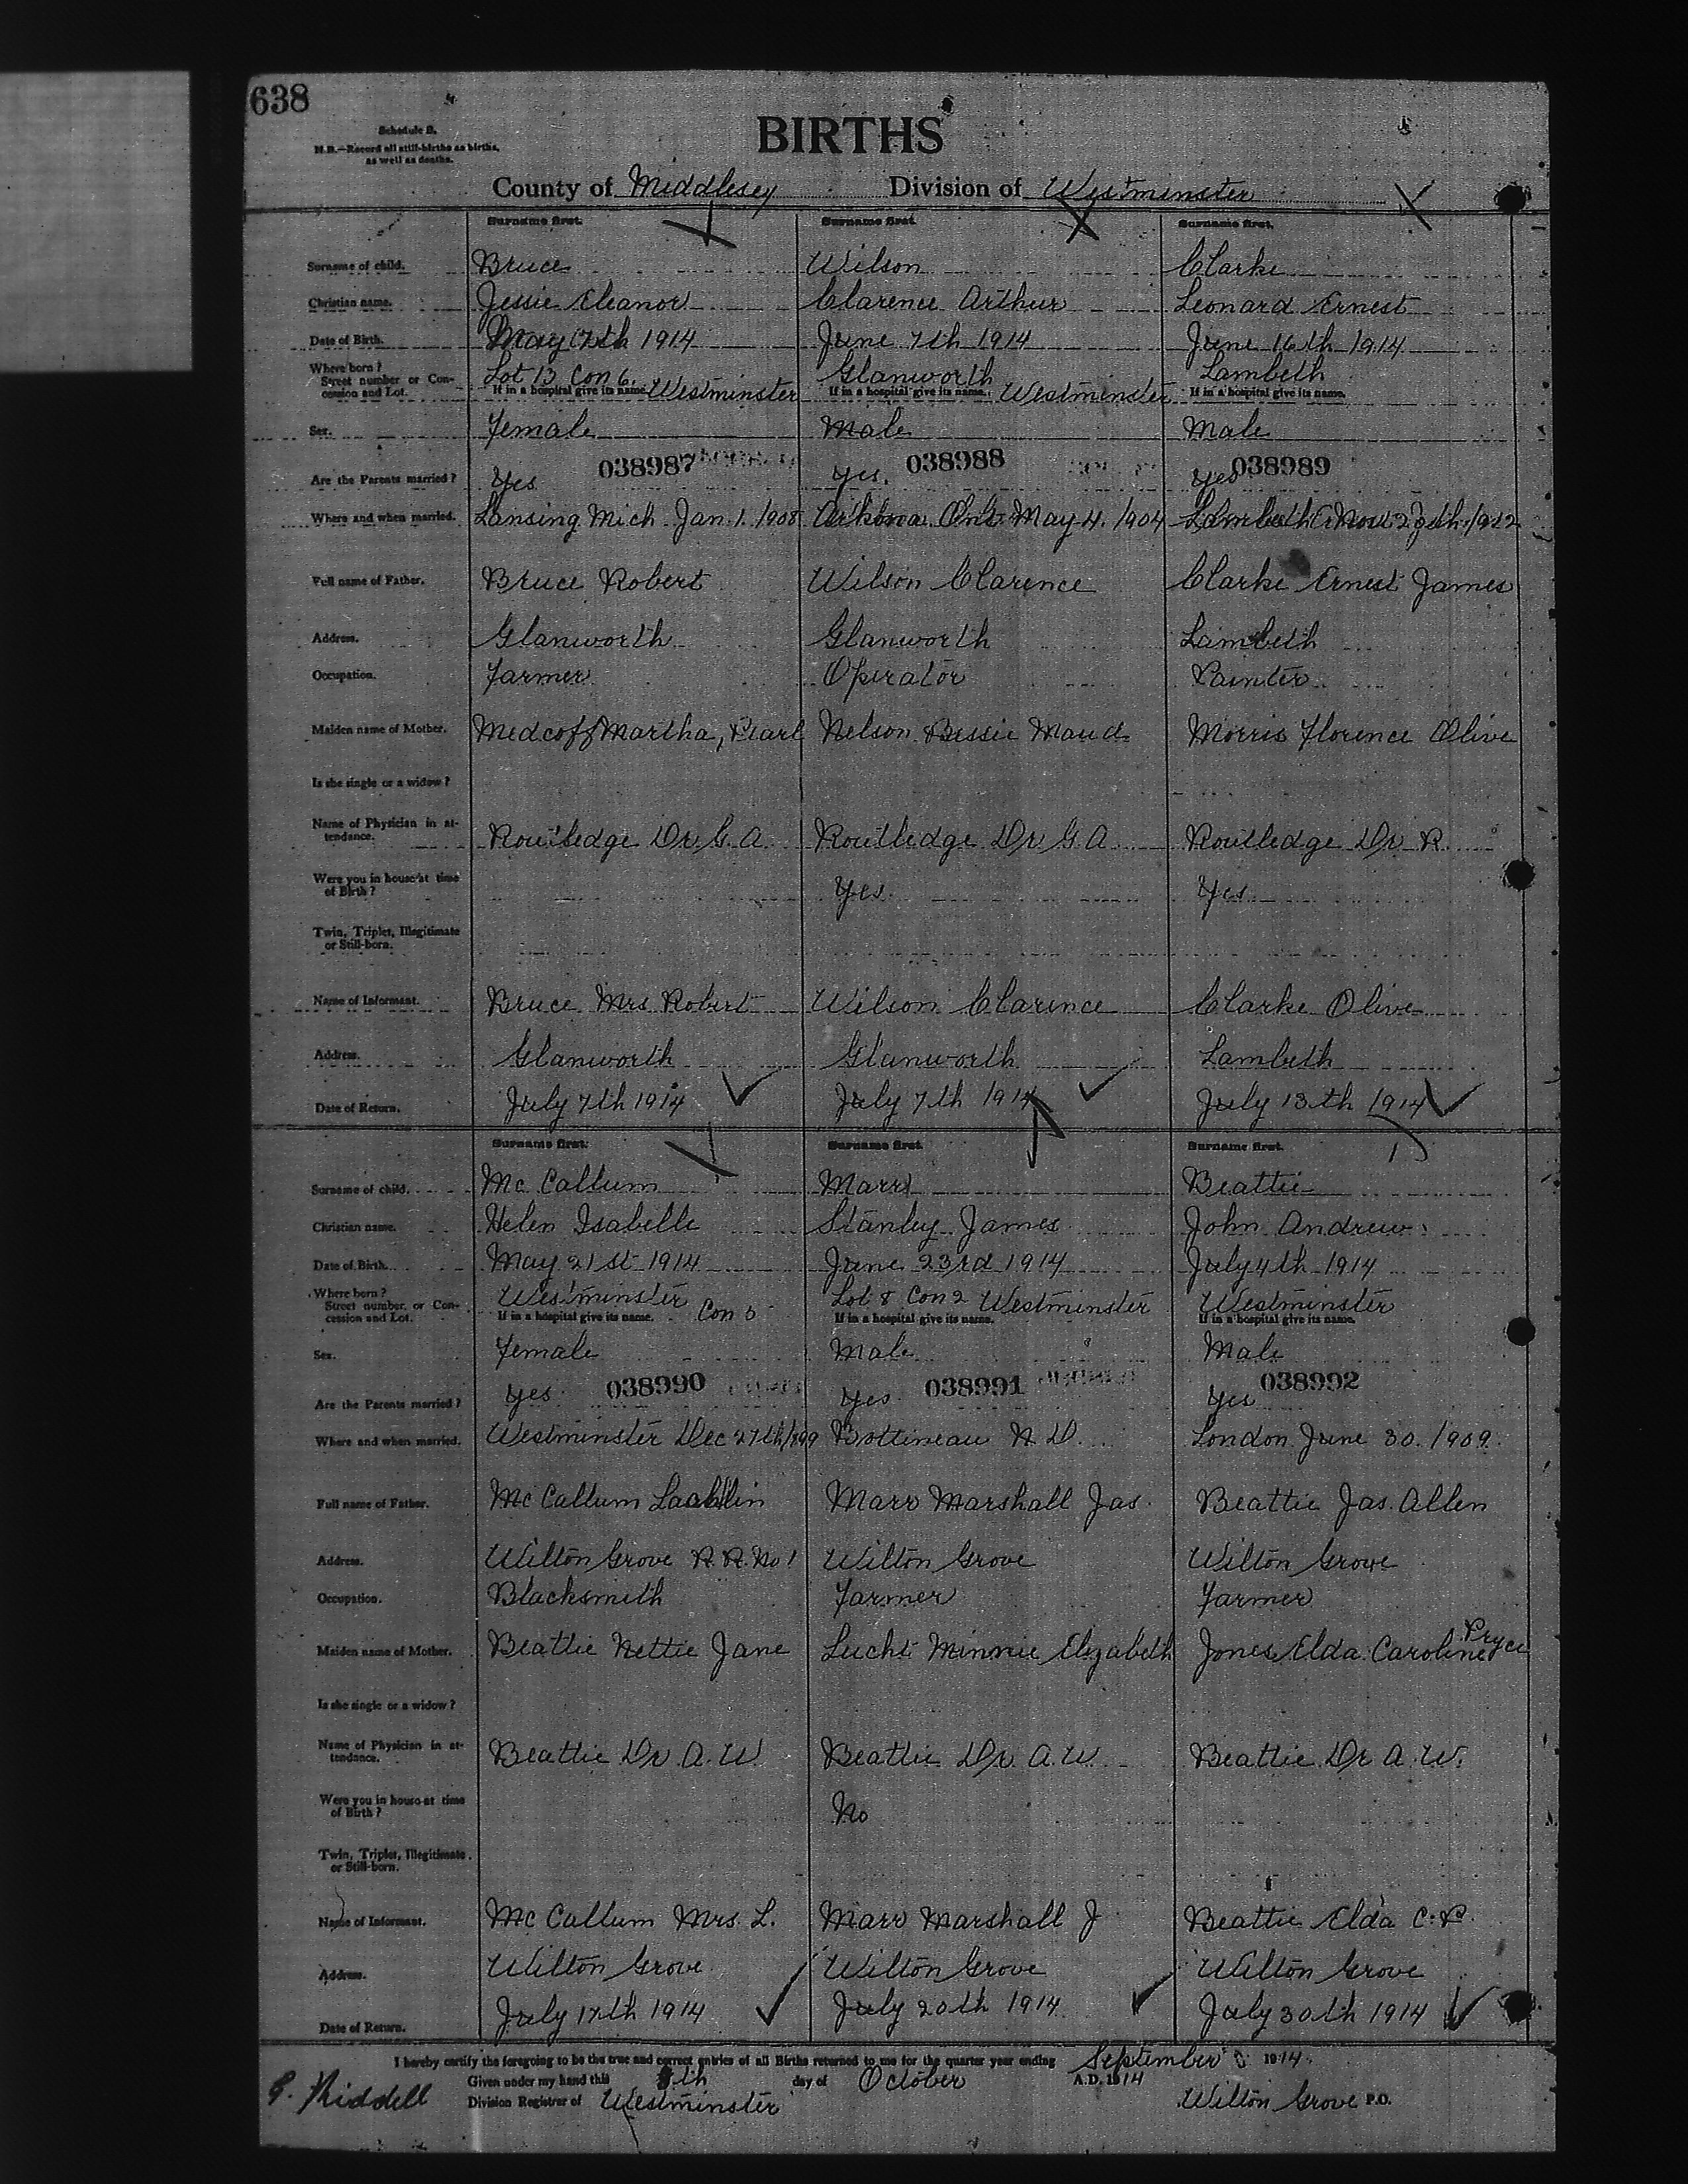 638
Schedule B.
N.B.—Record all still-births as births, as well as deaths.
BIRTHS
County of Middlesex Division of Westminster
Surname first. Surname first. Surname first.
Surname of child. Bruce Wilson Clarke
Christian name. Jessie Eleanor Clarence Arthur Leonard Ernest
Date of Birth. May 1914 June 7th 1914 June 16th 1914
Where born? Lot 13 Con 6 Glanworth Lambeth
Street number or Concession and Lot. If in a hospital give its name. Westminster If in a hospital give its name. Westminster If in a hospital give its name.
Sex. Female Male Male
Are the Parents married? Yes 038987 Yes. 038988 Yes 038989
Where and when married. Lansing Mich. Jan. 1. 1908 Arkona Ont. May 4. 1904 Lambeth 1912
Full name of Father. Bruce Robert Wilson Clarence Clarke Ernest James
Address. Glanworth Glanworth Lambeth
Occupation. Farmer Operator Painter
Maiden name of Mother. Medcoff Martha, Pearl Nelson Bessie Maud Morris Florence Olive
Is she single or a widow?
Name of Physician in attendance. Routledge Dr. G. A. Routledge Dr G A Routledge Dr R
Were you in house at time of Birth? Yes Yes
Twin, Triplet, Illegitimate or Still-born.
Name of Informant. Bruce Mrs Robert Wilson Clarence Clarke Olive
Address. Glanworth Glanworth Lambeth
Date of Return. July 7th 1914 July 7th 1914 July 13th 1914
Surname first. Surname first. Surname first.
Surname of child. Mc Callum Marr Beattie
Christian name. Helen Isabelle Stanley James John Andrew
Date of Birth. May 21st 1914 June 23rd 1914 July 4th 1914
Where born? Westminster Lot 8 Con 2 Westminster Westminster
Street number, or Concession and Lot. If in a hospital give its name. Con If in a hospital give its name. If in a hospital give its name.
Sex. Female Male Male
Are the Parents married? Yes 038990 Yes 038991 Yes 038992
Where and when married. Westminster Dec 27th/1899 Bottineau N. D. London June 30. 1909.
Full name of Father. Mc Callum Marr Marshall Jas. Beattie Jas. Allen
Address. Wilton Grove R. R. No 1 Wilton Grove Wilton Grove
Occupation. Blacksmith Farmer Farmer
Maiden name of Mother. Beattie Nettie Jane Lucht Minnie Elizabeth Jones Elda Caroline Pryce
Is she single or a widow?
Name of Physician in attendance. Beattie Dr A. W. Beattie Dr. A. W. Beattie Dr A. W.
Were you in house at time of Birth? No
Twin, Triplet, Illegitimate or Still-born.
Name of Informant. Mc Callum Mrs. L. Marr Marshall J Beattie Elda C. P.
Address. Wilton Grove Wilton Grove Wilton Grove
Date of Return. July 1914 July 20th 1914 July 30th 1914
I hereby certify the foregoing to be the true and correct entries of all Births returned to me for the quarter year ending September 1914.
Given under my hand this day of October A.D. 1914
G. Riddell Division Registrar of Westminster Wilton Grove P.O.